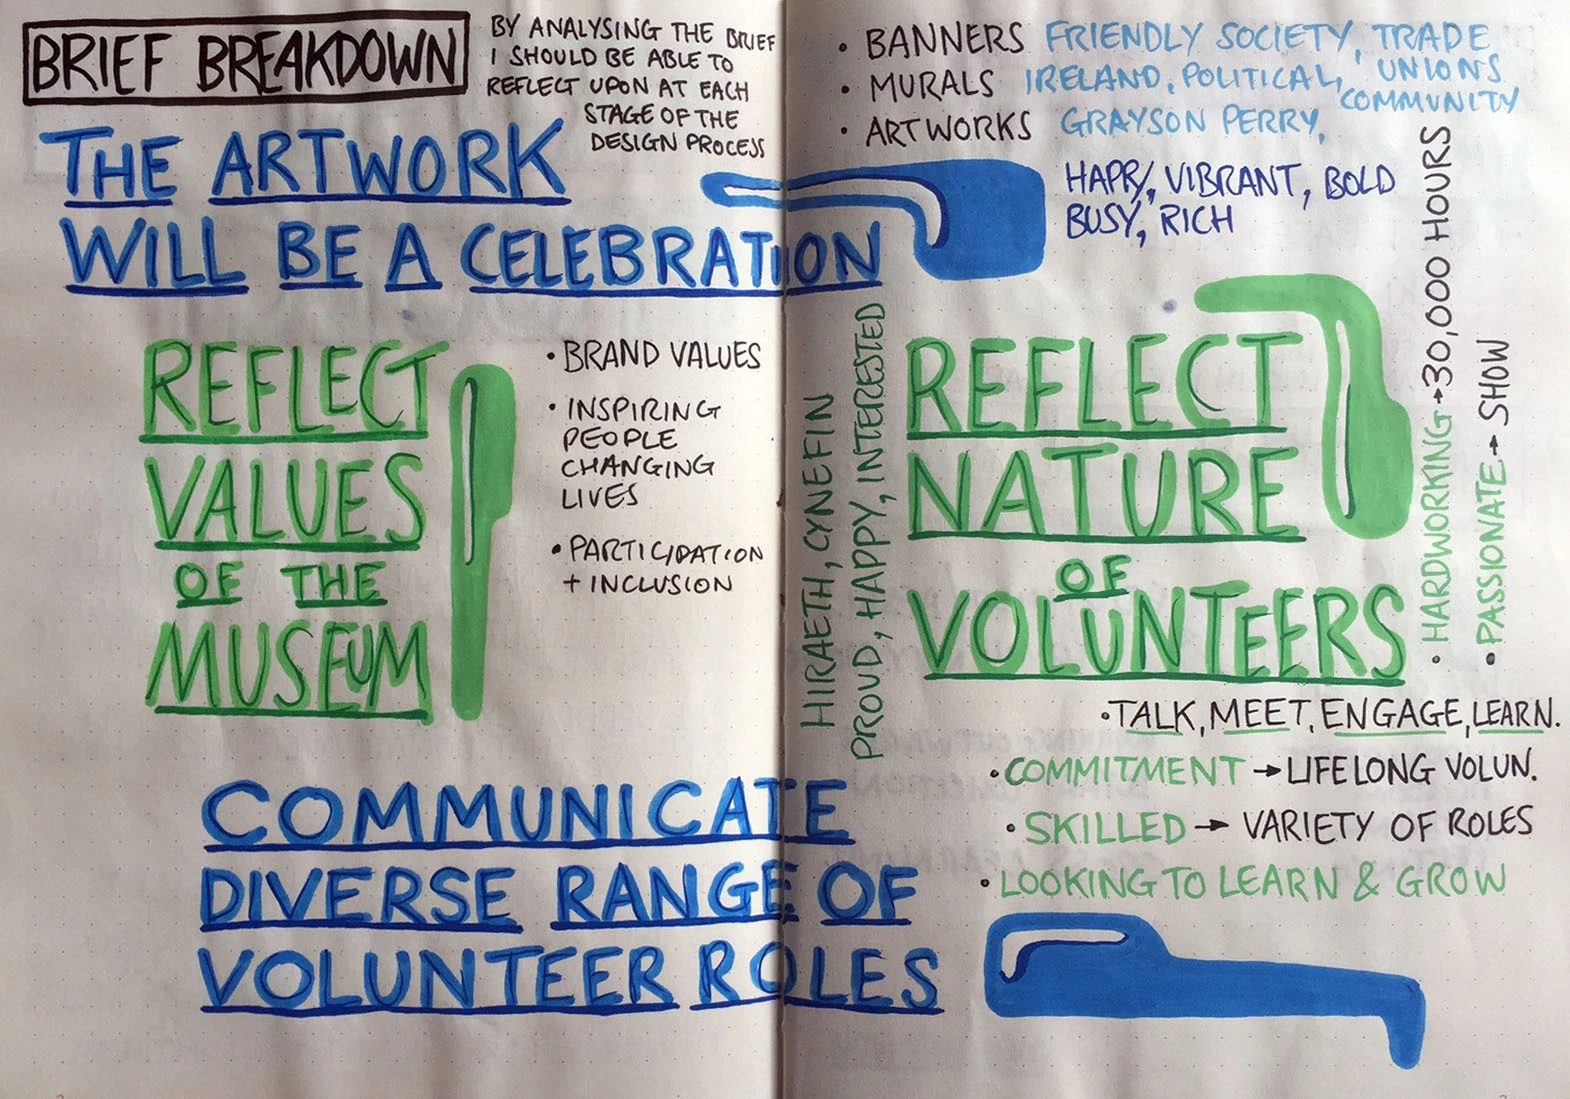 BRIEF BREAKDOWN
BY ANALYSING THE BRIEF
I SHOULD BE ABLE TO
REFLECT UPON AT EACH
STAGE OF THE
DESIGN PROCESS
THE ARTWORK
WILL BE A CELEBRATION
• BANNERS FRIENDLY SOCIETY, TRADE UNIONS
• MURALS IRELAND, POLITICAL, COMMUNITY
• ARTWORKS GRAYSON PERRY,
HAPPY, VIBRANT, BOLD
BUSY, RICH
REFLECT
VALUES
OF THE
MUSEUM
• BRAND VALUES
• INSPIRING
PEOPLE
CHANGING
LIVES
• PARTICIPATION
+ INCLUSION
HIRAETH, CYNEFIN
PROUD, HAPPY, INTERESTED
REFLECT
NATURE
OF
VOLUNTEERS
• HARDWORKING → 30,000 HOURS
• PASSIONATE → SHOW
• TALK, MEET, ENGAGE, LEARN.
• COMMITMENT → LIFELONG VOLUN.
• SKILLED → VARIETY OF ROLES
• LOOKING TO LEARN & GROW
COMMUNICATE
DIVERSE RANGE OF
VOLUNTEER ROLES